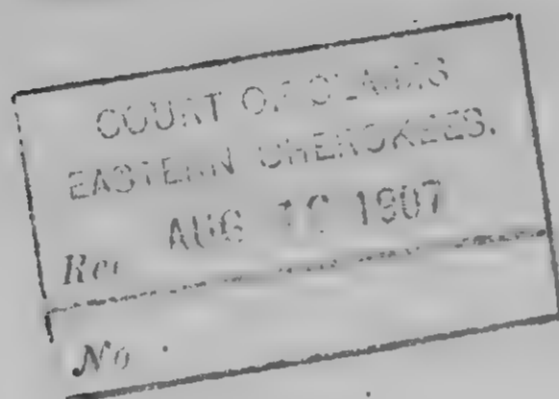 COURT OF CLAIMS
EASTERN CHEROKEES.
Rec AUG 1907
No.